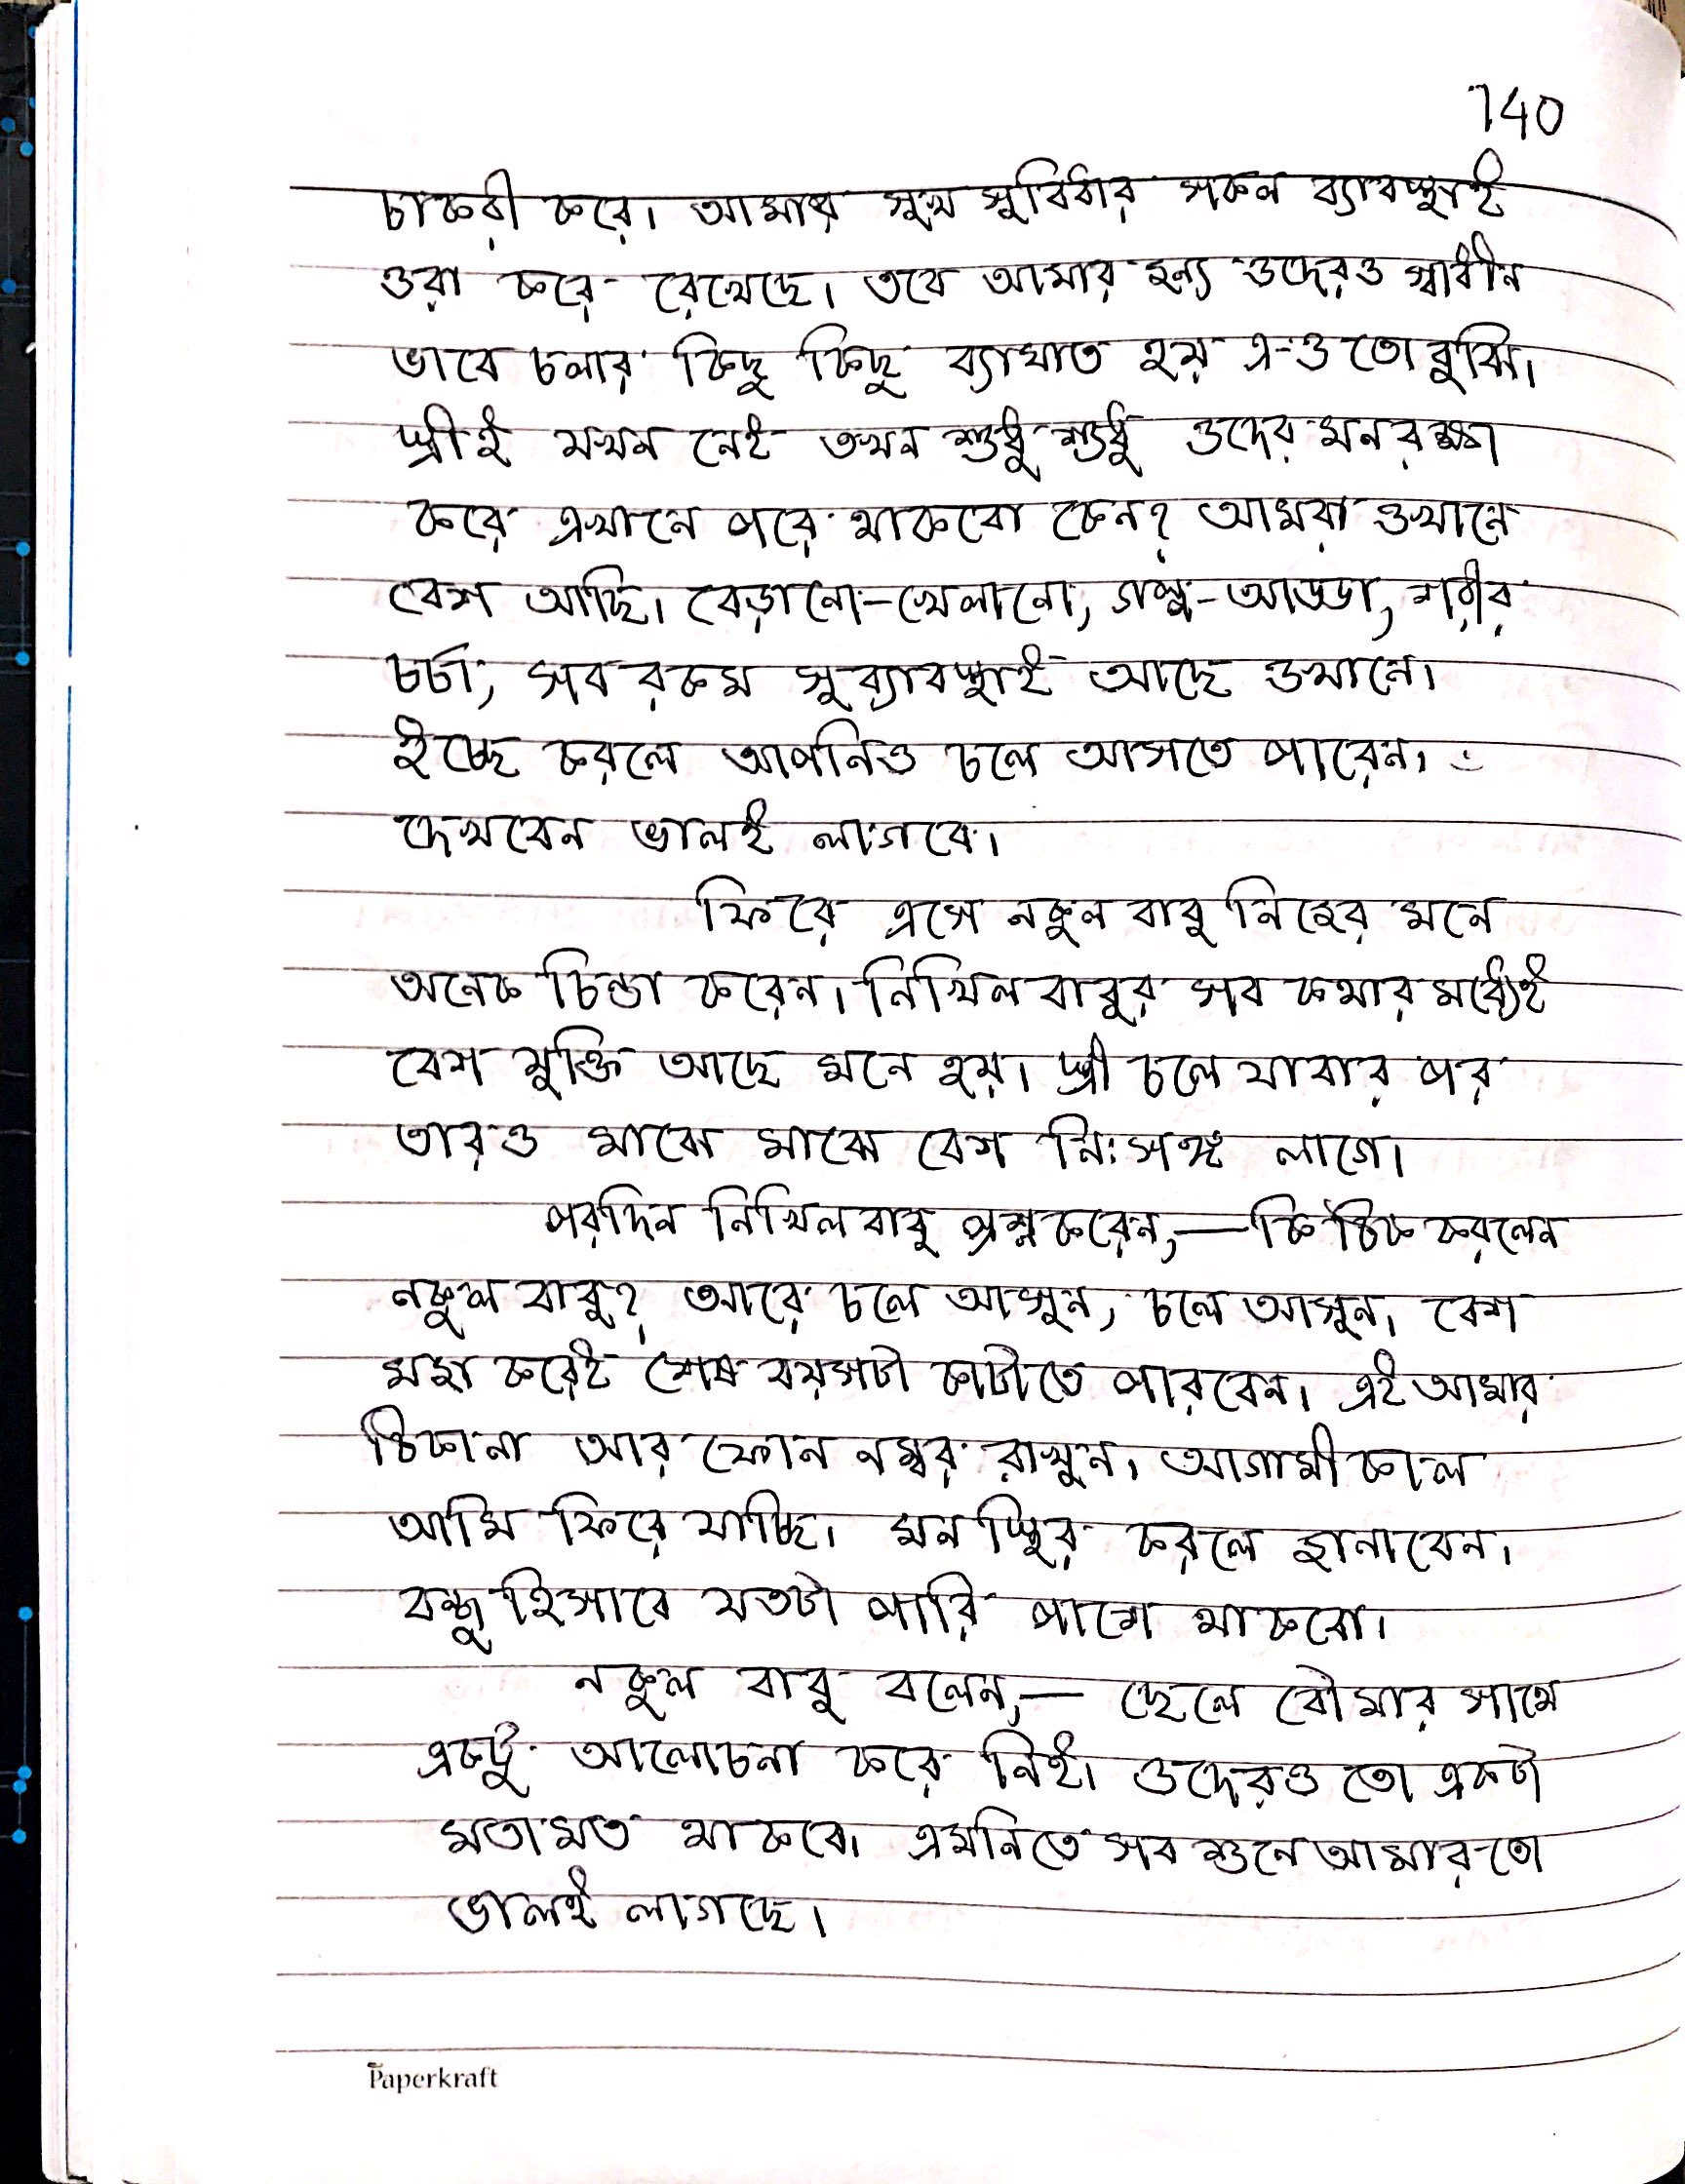 140
চাকরী করে। আমার সুখ সুবিধার সকল ব্যাবস্থাই
ওরা করে রেখেছে। তবে আমার জন্য ওদেরও স্বাধীন
ভাবে চলার কিছু কিছু ব্যাঘাত হয় এ-ও তো বুঝি।
স্ত্রীই যখন নেই তখন শুধু শুধু ওদের মনরক্ষা
করে এখানে পরে থাকবো কেন? আমরা ওখানে
বেশ আছি। বেড়ানো-খেলানো, গল্প-আড্ডা, শরীর
চর্চা, সব রকম সুব্যাবস্থাই আছে ওখানে।
ইচ্ছে করলে আপনিও চলে আসতে পারেন।
দেখবেন ভালই লাগবে।
ফিরে এসে নকুল বাবু নিজের মনে
অনেক চিন্তা করেন। নিখিল বাবুর সব কথার মধ্যেই
বেশ যুক্তি আছে মনে হয়। স্ত্রী চলে যাবার পর
তারও মাঝে মাঝে বেশ নিঃসঙ্গ লাগে।
পরদিন নিখিল বাবু প্রশ্ন করেন,— কি ঠিক করলেন
নকুল বাবু? আরে চলে আসুন, চলে আসুন। বেশ
মজা করেই শেষ বয়সটা কাটাতে পারবেন। এই আমার
ঠিকানা আর ফোন নম্বর রাখুন। আগামী কাল
আমি ফিরে যাচ্ছি। মনস্থির করলে জানাবেন।
বন্ধু হিসাবে যতটা পারি পাশে থাকবো।
নকুল বাবু বলেন,— ছেলে বৌমার সাথে
একটু আলোচনা করে নিই। ওদেরও তো একটা
মতামত থাকবে। এমনিতে সব শুনে আমার তো
ভালই লাগছে।
Paperkraft